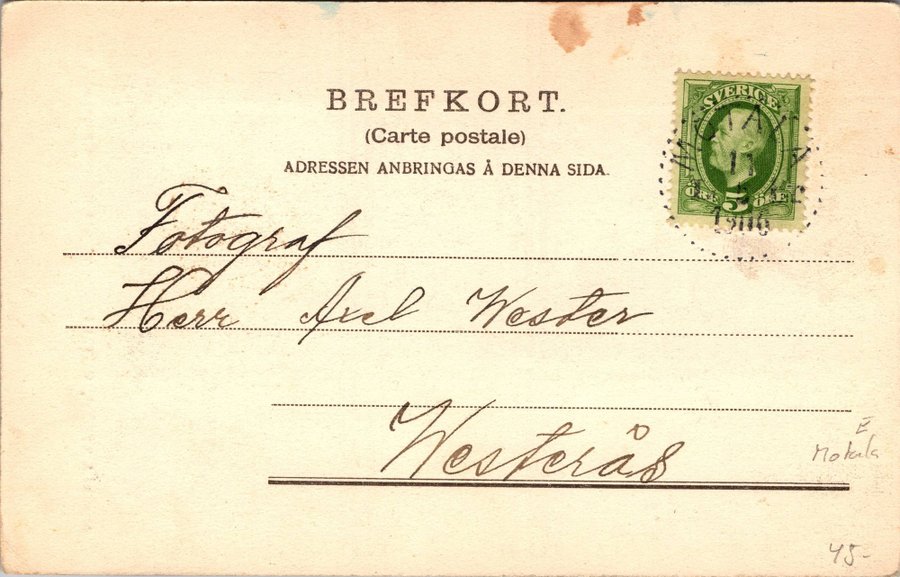 BREFKORT.
(Carte postale)
ADRESSEN ANBRINGAS Å DENNA SIDA.
SVERIGE
5
ÖRE
11
1906
Fotograf
Herr Axel Wester
Westerås
E
Motala
45-